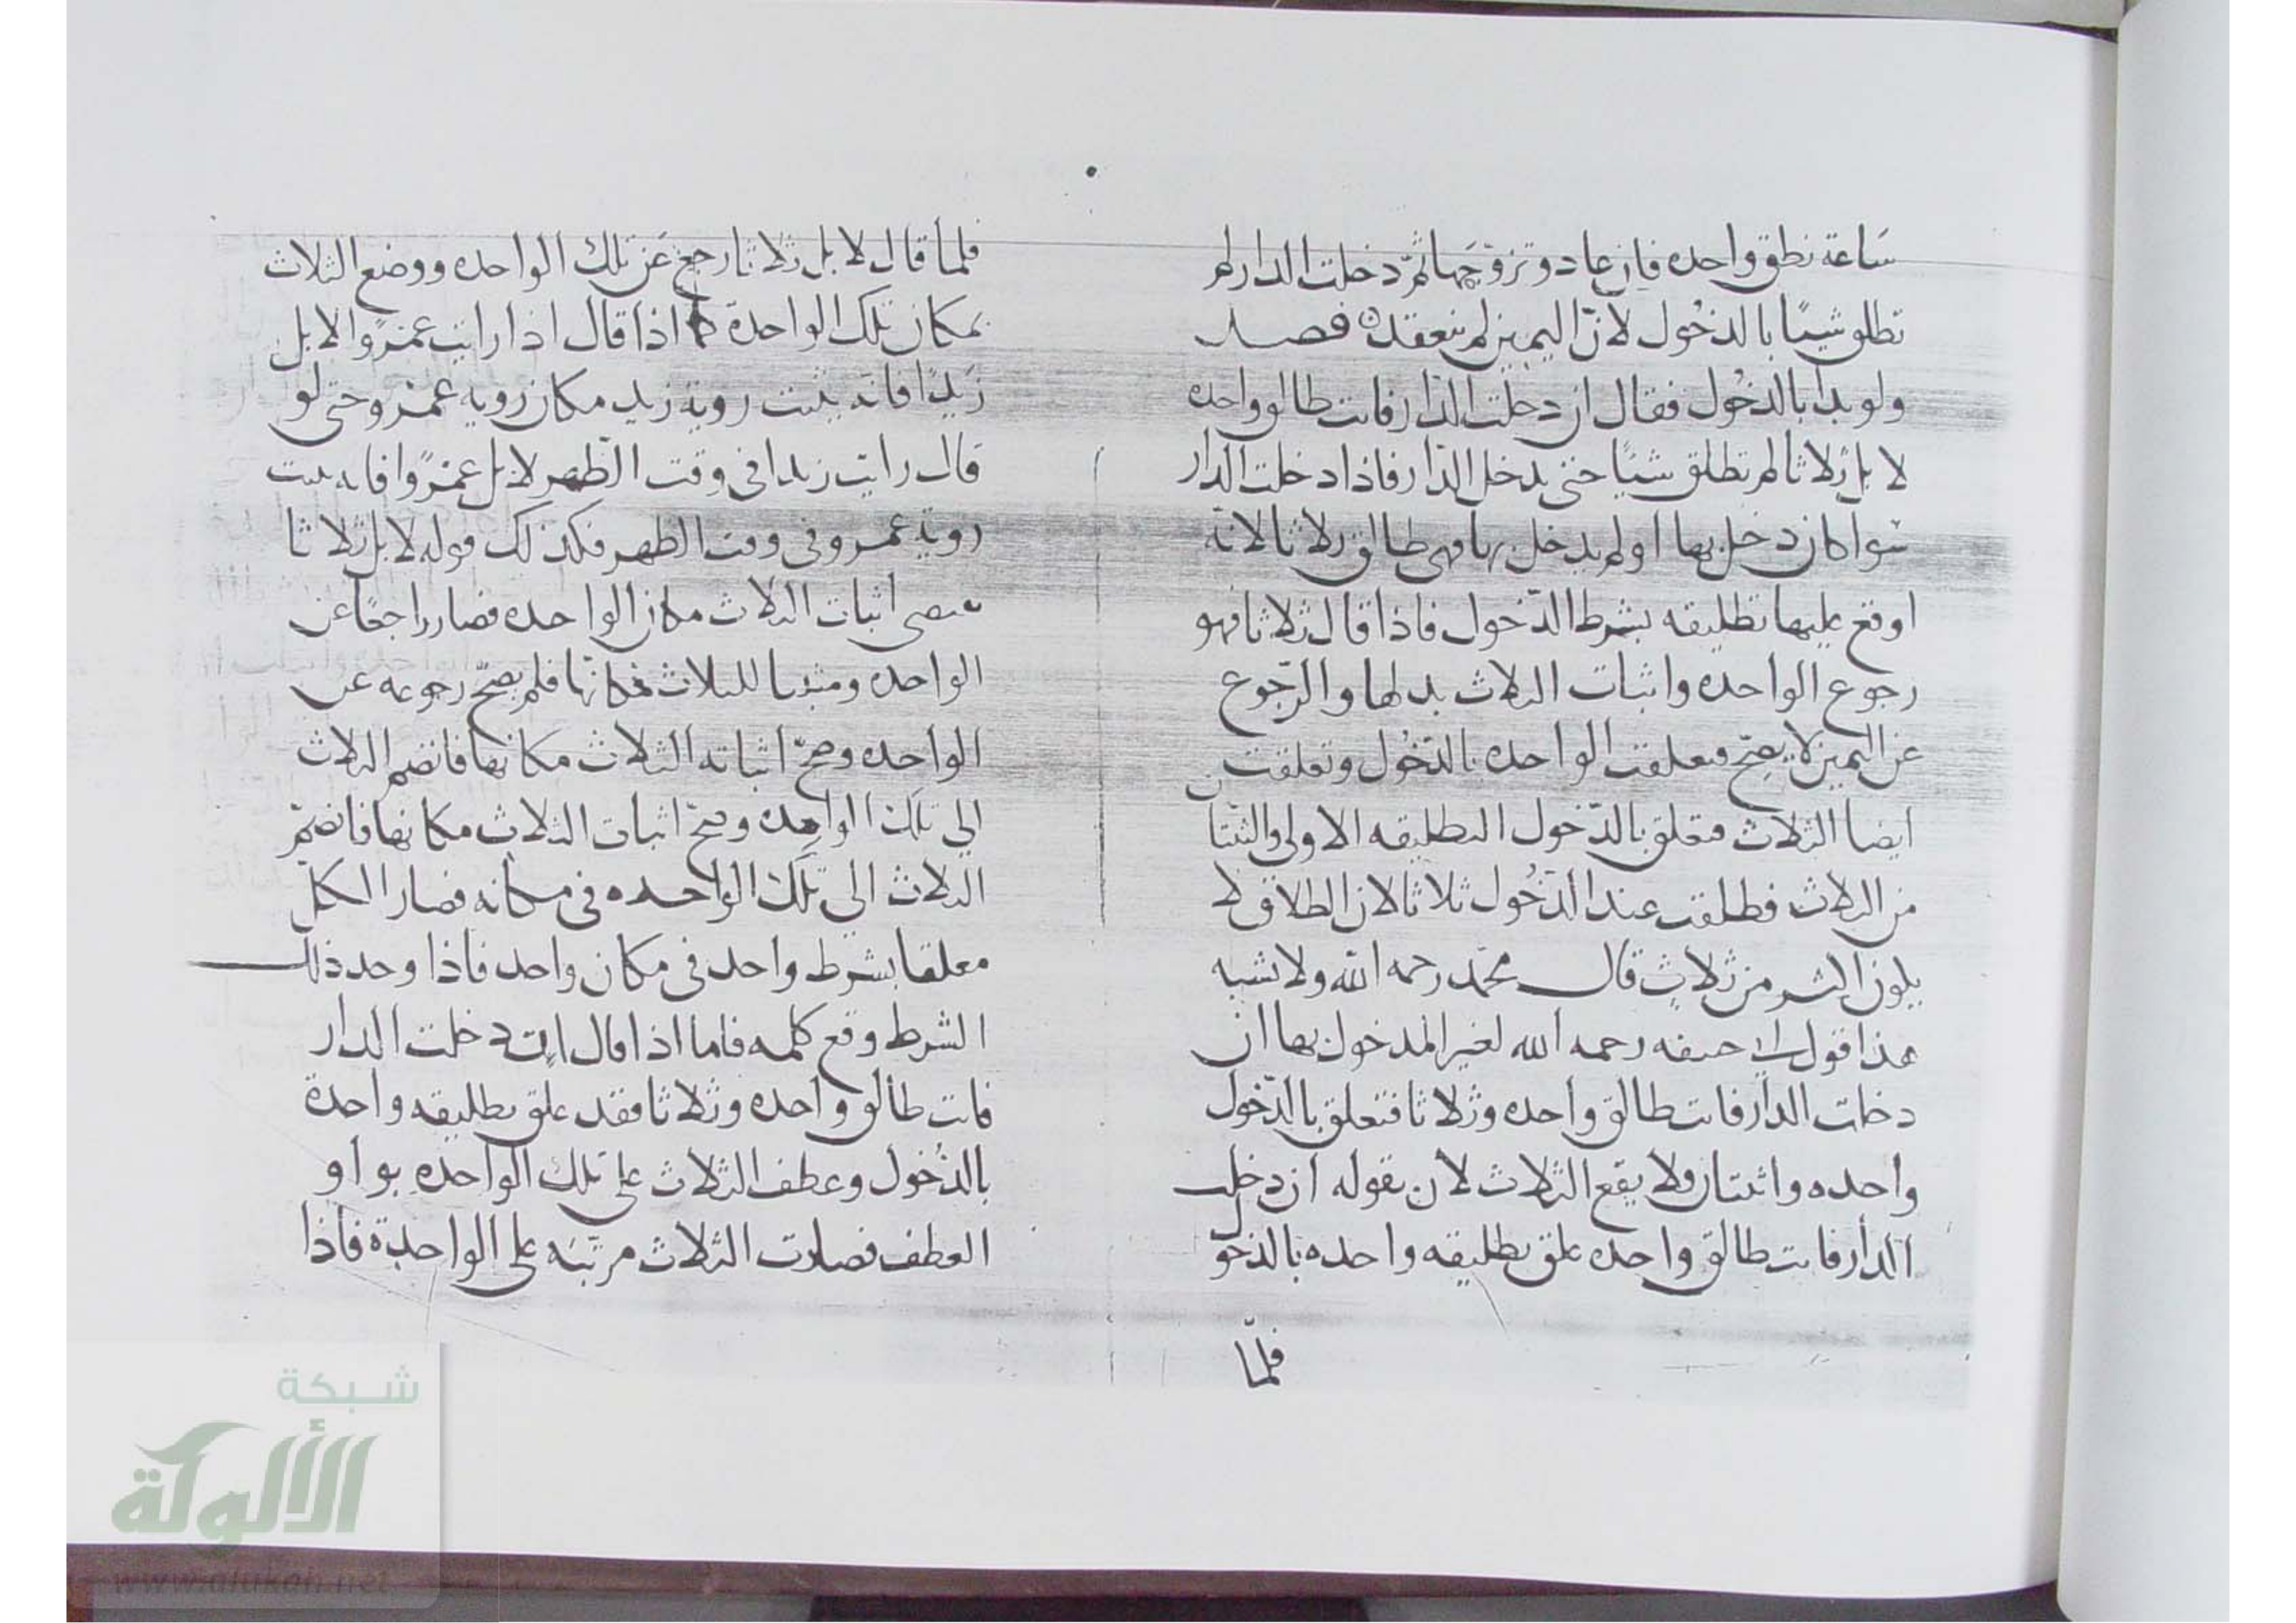 ساعة نطق واحده فان عاد وتزوجها ثم دخلت الدار لم
تطلق شيئا بالدخول لان اليمين لم ينعقد فصل
ولو بدا بالدخول فقال ان دخلت الدار فانت طالق واحده
لا بل ثلاثا لم تطلق شيئا حتى يدخل الدار فاذا دخلت الدار
سوا كان دخل بها او لم يدخل بها فهي طالق ثلاثا لانه
اوقع عليها تطليقه بشرط الدخول فاذا قال ثلاثا فهو
رجوع الواحده واثبات الثلاث بدلها والرجوع
عن اليمين لا يصح فتعلقت الواحده بالدخول وتعلقت
ايضا الثلاث فتعلق بالدخول التطليقه الاولى والثنتان
من الثلاث فطلقت عند الدخول ثلاثا لان الطلاق لا
يكون اكثر من ثلاث قال محمد رحمه الله ولا نشبه
هذا قول ابي حنيفه رحمه الله لغير المدخول بها ان
دخلت الدار فانت طالق واحده وثلاثا فتعلق بالدخول
واحده واثنتان ولا يقع الثلاث لان بقوله ان دخلت
الدار فانت طالق واحده علق تطليقه واحده بالدخو
فلما
فلما قال لا بل ثلاثا رجع عن تلك الواحده ووضع الثلاث
بمكان تلك الواحدة كما اذا قال اذا رايت عمروا لا بل
زيدا فانه يثبت روية زيد مكان روية عمرو حتى لو
قال رايت زيدا في وقت الظهر لا بل عمروا فانه يثبت
روية عمرو في وقت الظهر فكذلك قوله لا بل ثلاثا
يقتضي اثبات الثلاث مكان الواحده فصار راجعا عن
الواحده ومثبتا للثلاث مكانها فلم يصح رجوعه عن
الواحده وصح اثباته الثلاث مكانها فانضم الثلاث
الي تلك الواحده وصح اثبات الثلاث مكانها فانضم
الثلاث الي تلك الواحده في مكانه فصار الكل
معلقا بشرط واحد في مكان واحد فاذا وجد ذلك
الشرط وقع كلمه فاما اذا قال ان دخلت الدار
فانت طالق واحده وثلاثا فقد علق تطليقه واحدة
بالدخول وعطف الثلاث على تلك الواحده بواو
العطف فصارت الثلاث مرتبه على الواحدة فاذا
شبكة
الألوكة
www.alukah.net